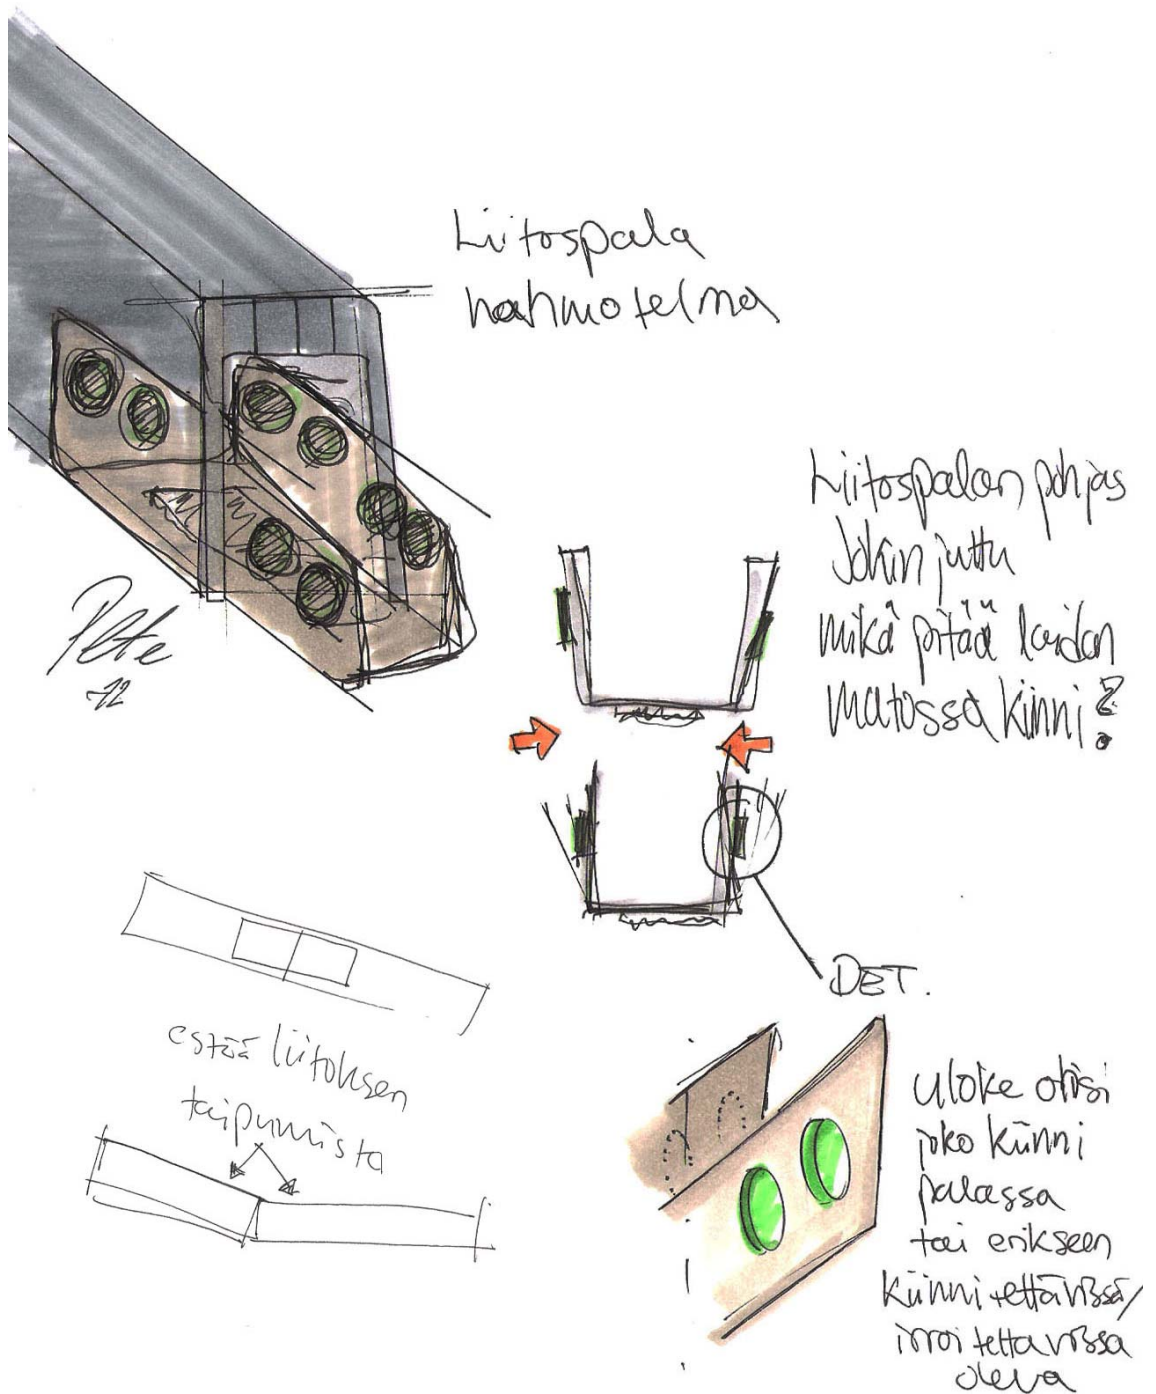 Liitospala
hahmotelma
Liitospalan pohjas
Jokin juttu
mikä pitää laidan
matossa kiinni?
Pete
-12
DET.
estää liitoksen
taipumista
uloke olisi
joko kiinni
palassa
tai erikseen
kiinnitettävissä/
irroitettavissa
oleva